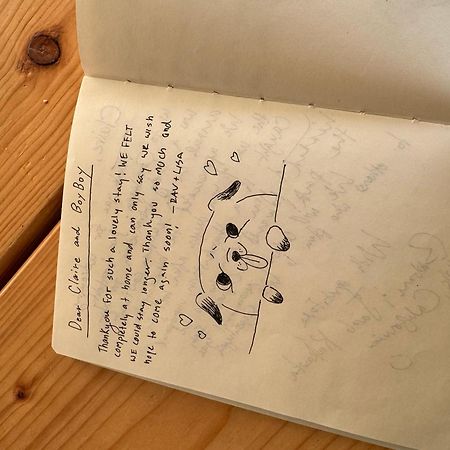 Dear Claire and BoyBoy
Thankyou for such a lovely stay! WE FELT
completely at home and can only say we wish
we could stay longer. Thankyou so much and
hope to come again soon! – RAV + LISA